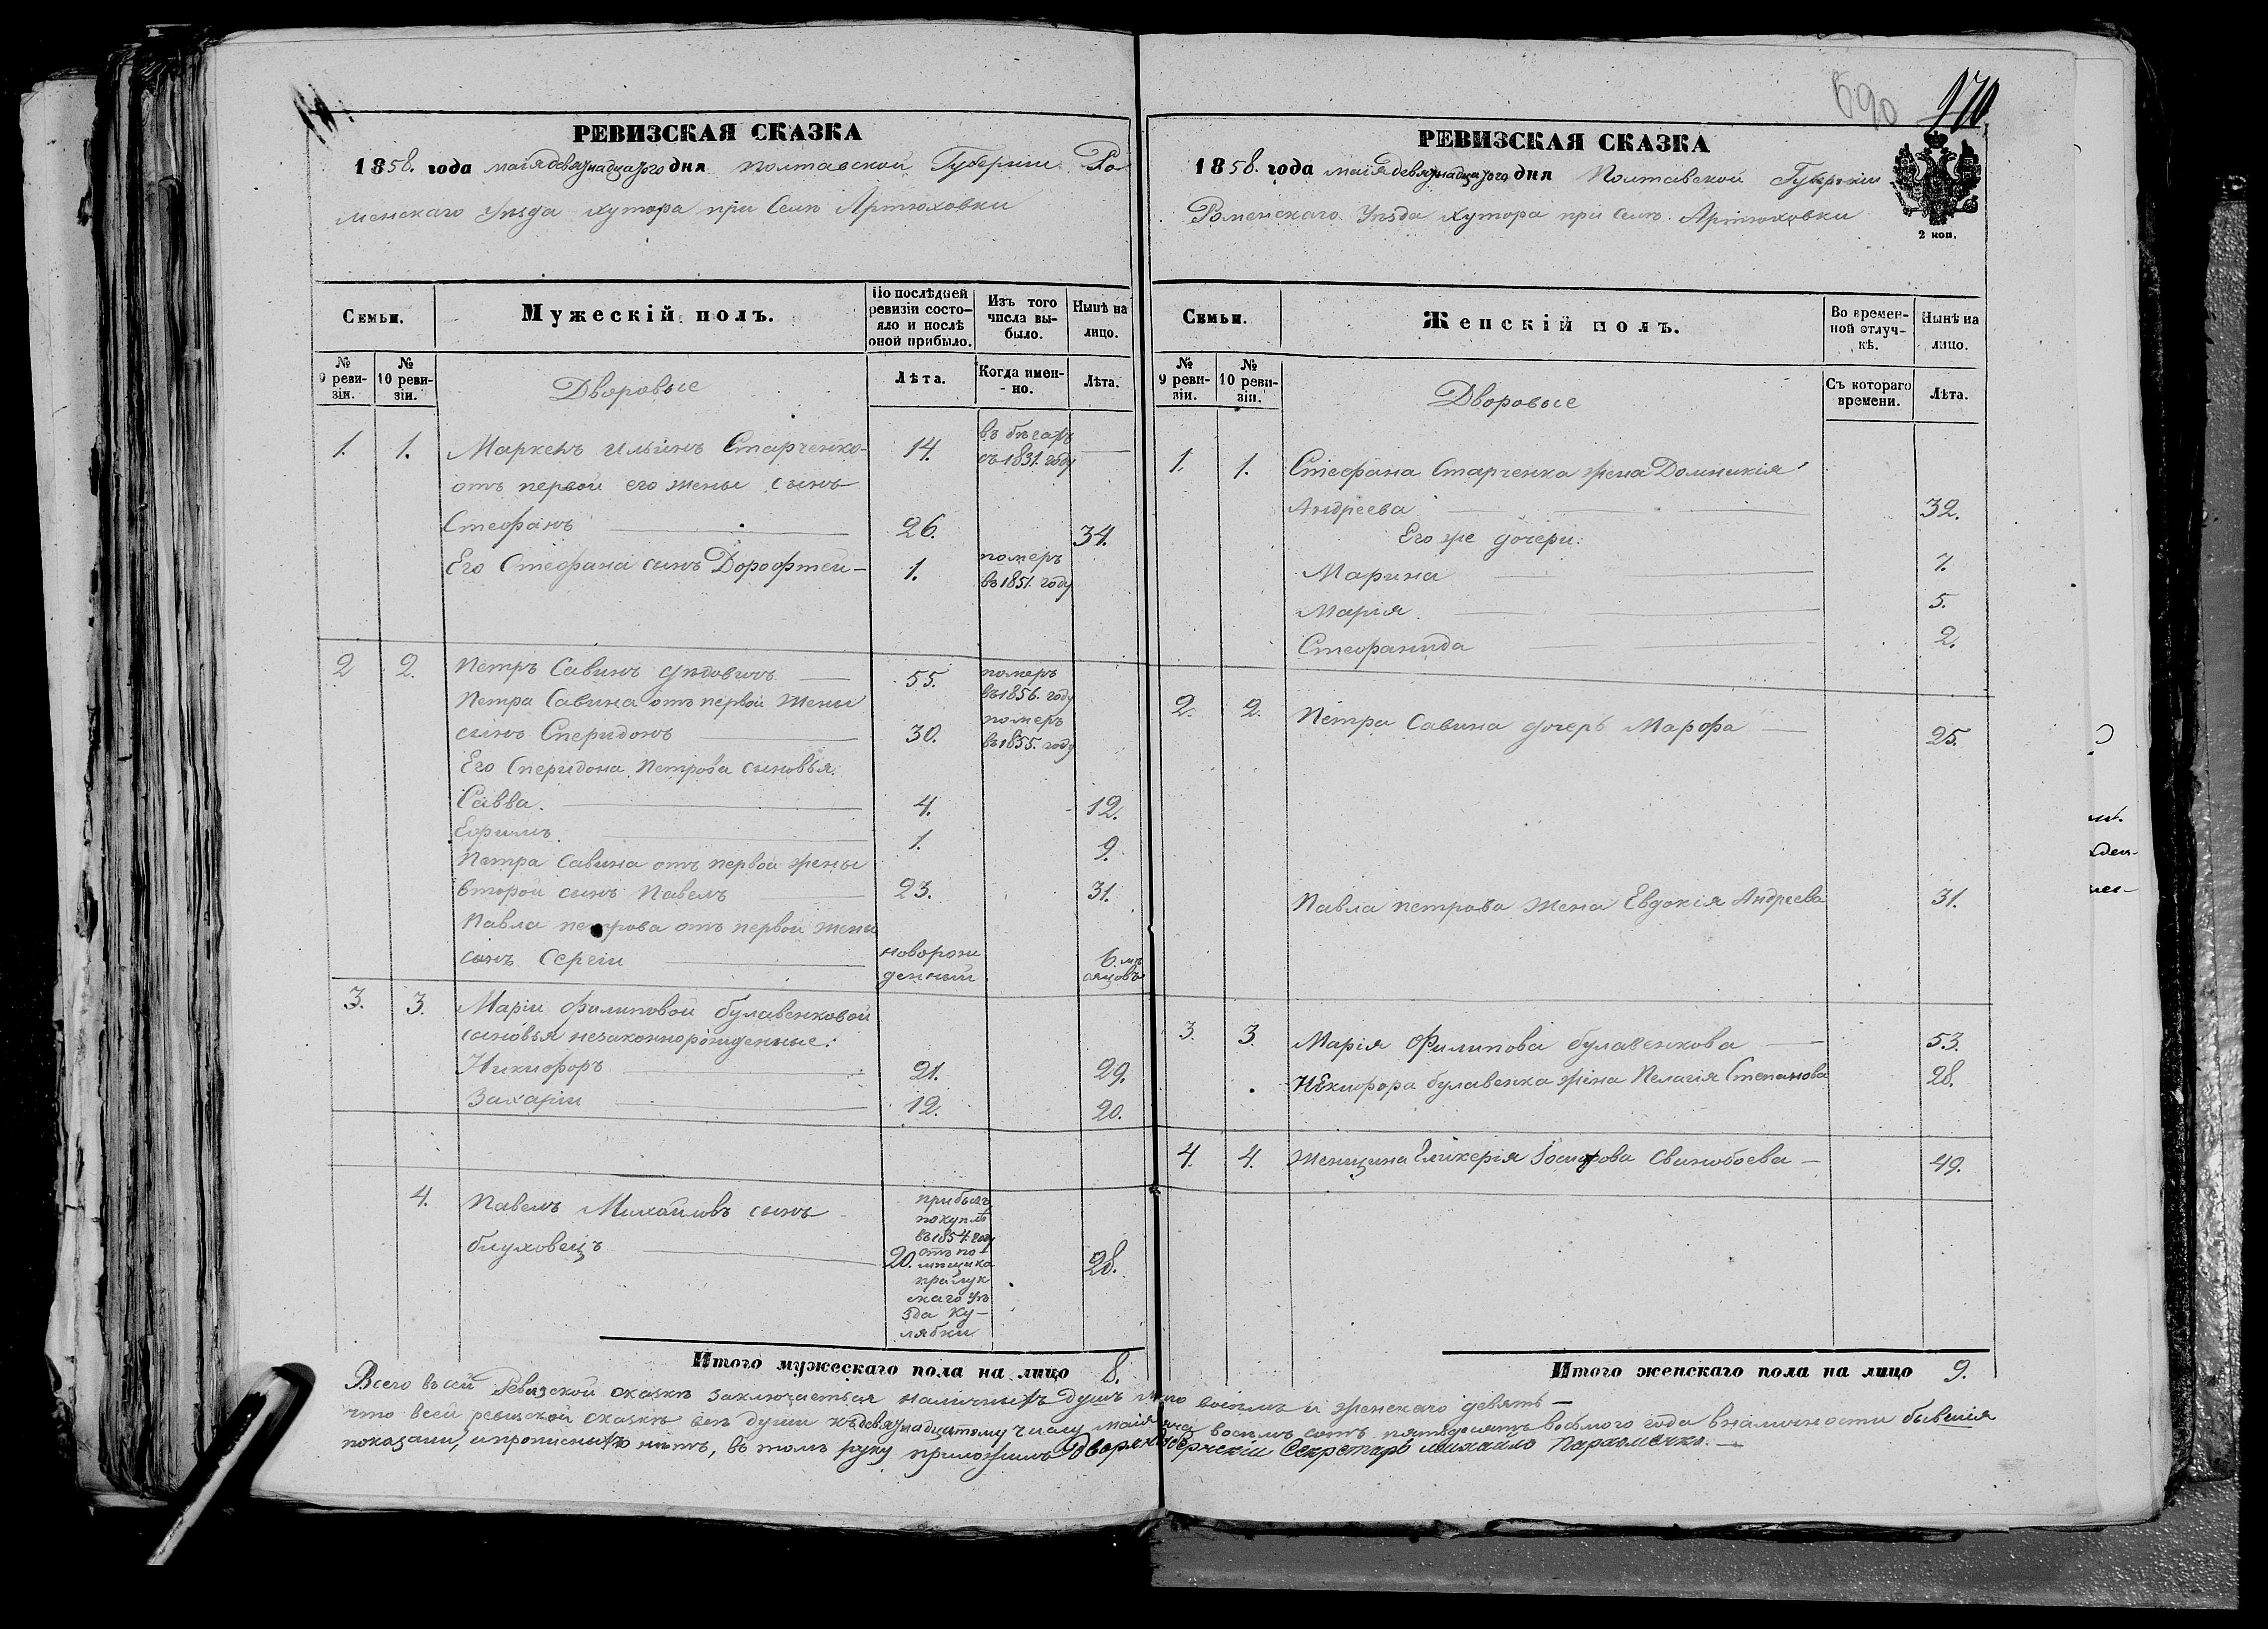 РЕВИЗСКАЯ СКАЗКА
1858. года маія девятнадцатого дня Полтавской Губерніи Ро
менскаго Уѣзда хутора при Селѣ Артюховки
Семьи.
Мужескій полъ.
По послѣдней ревизіи состо-яло и послѣ оной прибыло.
Изъ того числа вы-было.
Нынѣ на лицо.
№ 9 реви-зіи.
№ 10 реви-зіи.
Дворовые
Лѣта.
Когда имен-но.
Лѣта.
1. 1. Маркелъ Ильинъ Старченко- 14. въ бѣгахъ съ 1831. году —
отъ первой его жены сынъ
Стефанъ 26. 34.
Его Стефана сынъ Дорофтей - 1. померъ въ 1851. году
2 2. Петръ Савинъ 55. померъ въ 1856. году
Петра Савина отъ первой жены
сынъ Спиридонъ 30. померъ въ 1855. году
Его Спиридона Петрова сыновья:
Савва. 4. 12.
Ефимъ 1. 9.
Петра Савина отъ первой жены
второй сынъ Павелъ 23. 31.
Павла петрова отъ первой жены
сынъ Сергіи новорож денный 6. мѣ сяцовъ
3. 3. Маріи Филиповой булавенковой
сыновья незаконнорожденные:
Никифоръ 21. 29.
Захарій 12. 20.
4. Павелъ Михайловъ сынъ
глуховецъ 20. 28.
прибылъ
покупкѣ
въ 1854. году
отъ по
мѣщика
прилук
скаго Уѣ
зда Ку-
лябки
Итого мужескаго пола на лицо 8.
690
970
РЕВИЗСКАЯ СКАЗКА
1858. года маія девятнадцатого дня Полтавской Губерніи
Роменскаго Уѣзда хутора при селѣ Артюховки
2 коп.
Семьи.
Женскій полъ.
Во времен-ной отлуч-кѣ.
Нынѣ на лицо.
№ 9 реви-зіи.
№ 10 реви-зіи.
Дворовые
Съ котораго времени.
Лѣта.
1. 1. Стефана Старченка жена Домникія
Андреева 32.
Его же дочери:
Марина 7.
Марія 5.
Стефанида 2.
2. 2. Петра Савина дочерь Марфа 25.
Павла петрова жена Евдокія Андреева 31.
3 3. Марія Филипова булавенкова 53.
Никифора булавенка жена Пелагія Степанова 28.
4. 4. Женщина Гликерія Свинобоева - 49.
Итого женскаго пола на лицо 9.
Всего въ сей Ревизской сказкѣ заключаеться наличныхъ душъ восемь и женскаго девять -
что всей ревизской сказкѣ всѣ души къ девятнадцатому числу маія восемь сотъ пятьдесятъ восьмого года въ наличности бывшія
показаны, и прописныхъ нѣтъ, въ томъ руку приложилъ Секретарь михайло Пархоменко. —